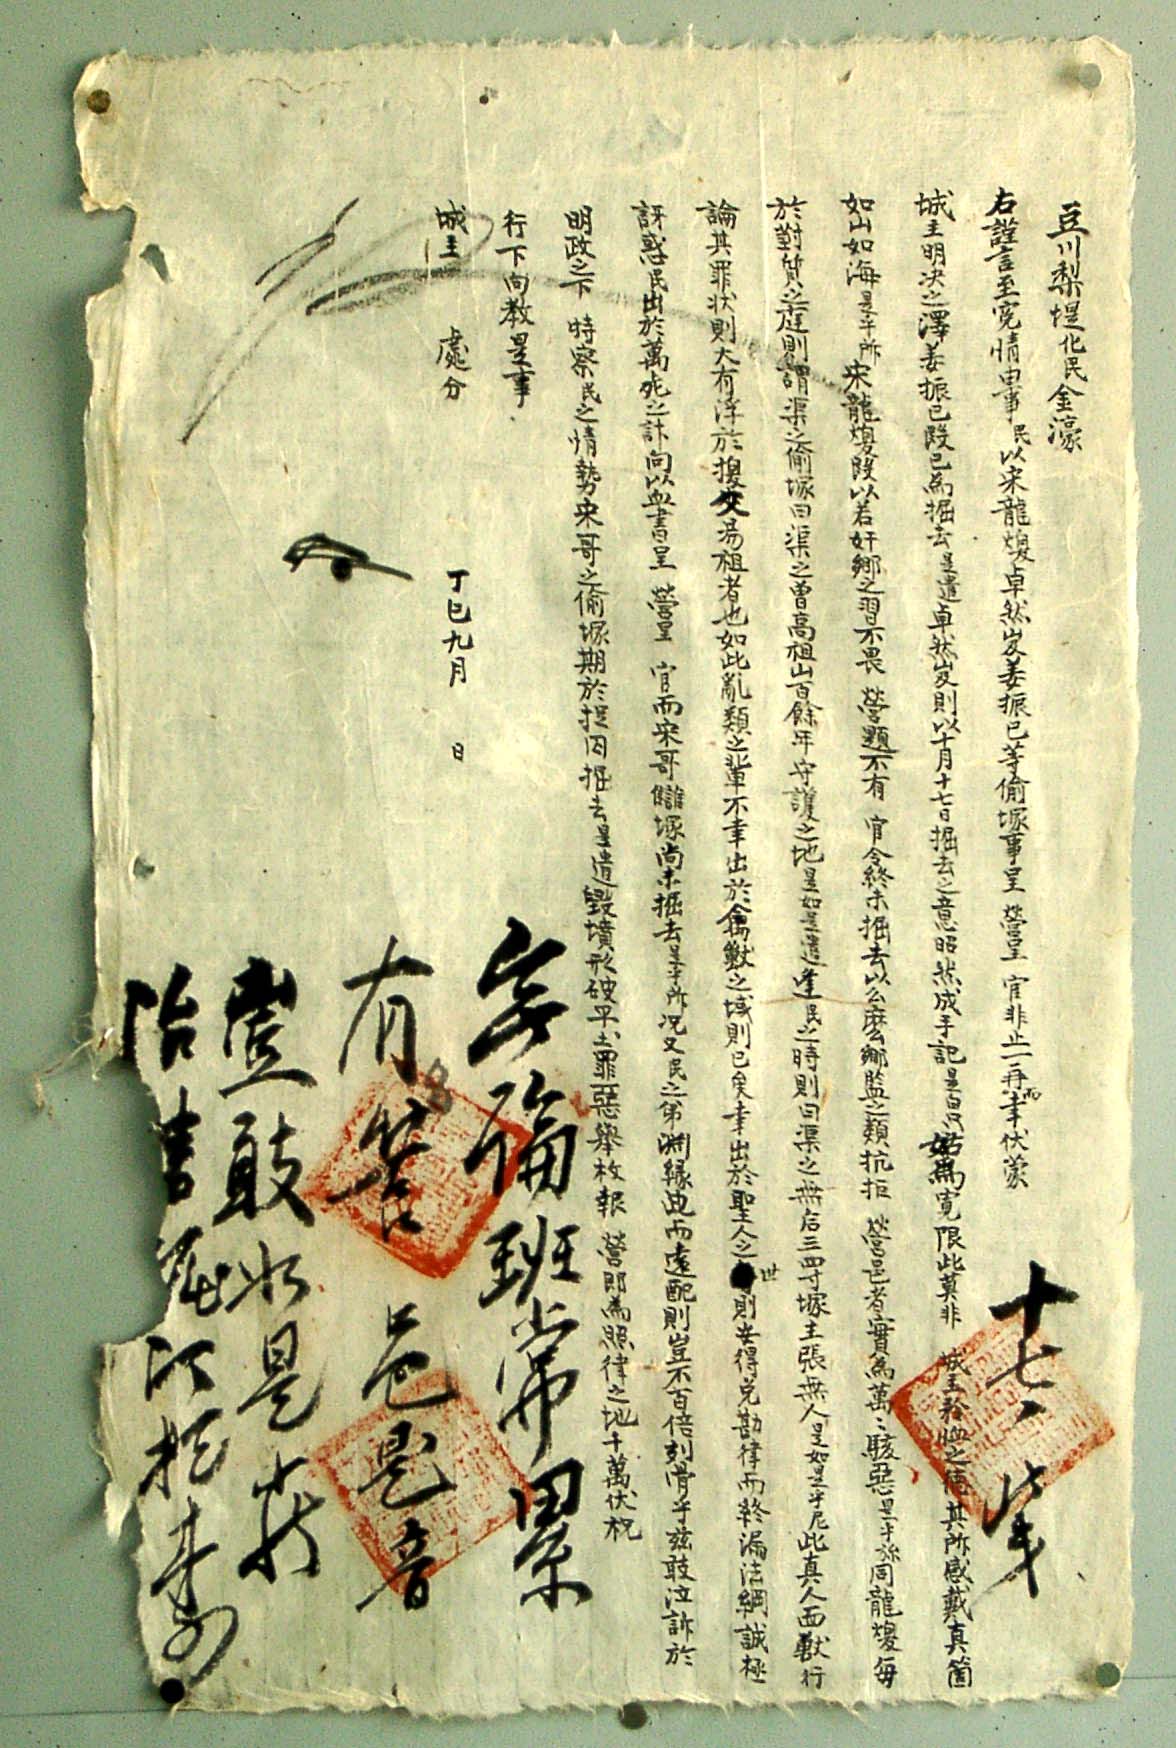 豆川梨堤化民金濠
右謹言至寃情由事民以宋龍煥卓然岌姜振已等偷塚事呈 營呈 官非止一再而幸伏蒙
城主明決之澤姜振已段已爲掘去是遣卓然岌則以十月十七日掘去之意昭然成手記是白只 爲寬限此莫非 城主矜恤之德其所感戴真箇
如山如海是乎所宋龍煥段以若奸鄕之習不畏 營題不有 官令終未掘去以么麽鄕監之類抗拒 營邑者實爲萬〻駭惡是乎旀同龍煥每
於對質之庭則謂渠之偷塚曰渠之曾高祖山百餘年守護之地是如是遣逢民之時則曰渠之無后三四寸塚主張無人是如是乎尼此真人面獸行
論其罪状則大有浮於 父湯祖者也如此亂類之輩不幸出於禽獸之域則已矣幸出於聖人之世則安得免勘律而終漏法網誠極
訝惑民出於萬死之計向以血書呈 營呈 官而宋哥讎塚尚未掘去是乎所况又民之弟淵緣此而遠配則豈不百倍刻骨乎玆敢泣訴於
明政之下 特察民之情勢宋哥之偷塚期於捉囚掘去是遣毀墳形破平土罪惡舉枚報 營即爲照律之地千萬伏祝
行下向教是事
城主 處分
丁巳九月 日
無論班常累
有營邑是音
豈敢如是
治 次捉来向
十七